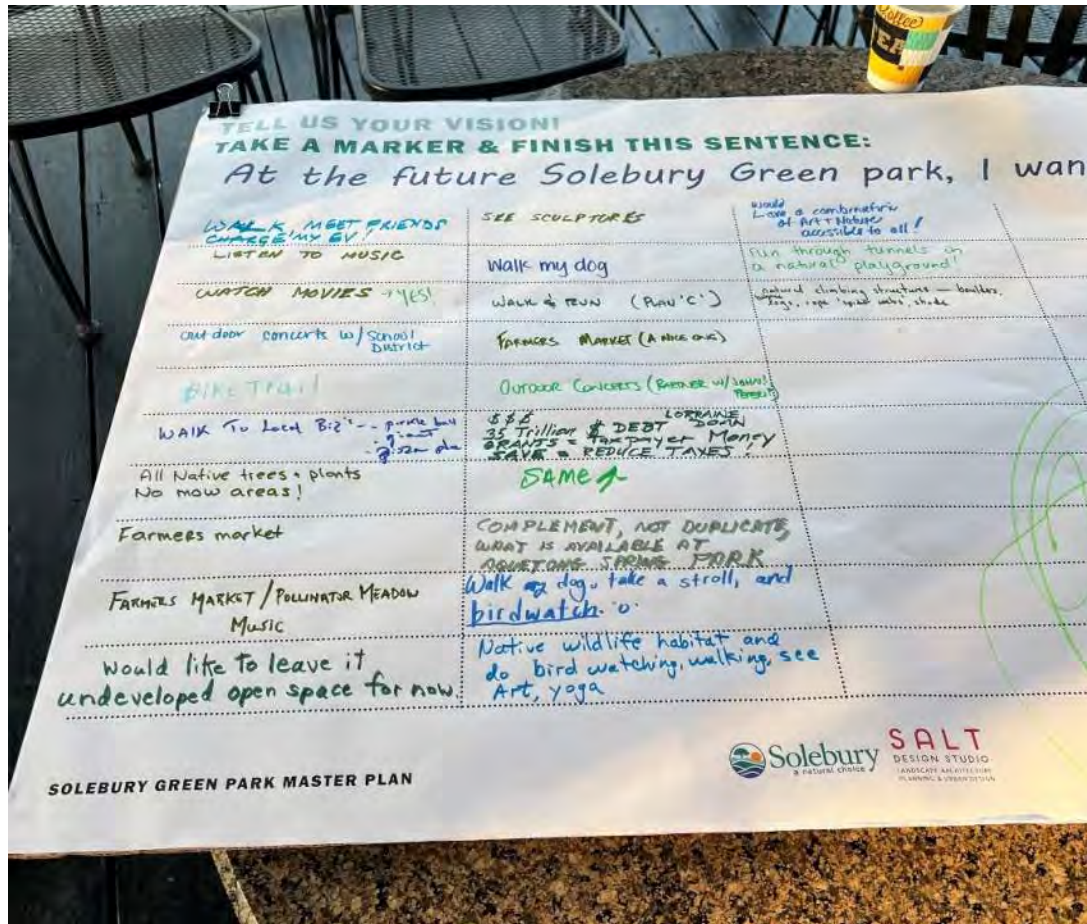 Coffee
TEA
TELL US YOUR VISION!
TAKE A MARKER & FINISH THIS SENTENCE:
At the future Solebury Green park, I wan
WALK, MEET FRIENDS
CHARGE MY EV!
LISTEN TO MUSIC
WATCH MOVIES → YES!
outdoor concerts w/ School
District
BIKE TRAIL
WALK To Local Biz's
giant
All Native trees + plants
No mow areas!
Farmers market
FARMERS MARKET / POLLINATOR MEADOW
Music
Would like to leave it
undeveloped open space for now.
SEE SCULPTURES
Walk my dog
WALK & RUN (PLAN 'C')
FARMERS MARKET (A NICE ONE)
OUTDOOR CONCERTS (PARTNER W/
$$$ LORRAINE
35 Trillion $ DEBT DOWN
GRANTS = Taxpayer Money
SAVE = REDUCE TAXES!
SAME
COMPLEMENT, NOT DUPLICATE,
WHAT IS AVAILABLE AT
AQUETONG SPRING PARK
Walk my dog, take a stroll, and
birdwatch
Native wildlife habitat and
do bird watching, walking, see
Art, yoga
would
Love a combination
of Art + Nature
accessible to all!
run through tunnels in
a natural playground!
natural climbing structures — boulders,
logs, rope "spider webs" shade
SOLEBURY GREEN PARK MASTER PLAN
Solebury
a natural choice
SALT
DESIGN STUDIO
LANDSCAPE ARCHITECTURE
PLANNING & URBAN DESIGN